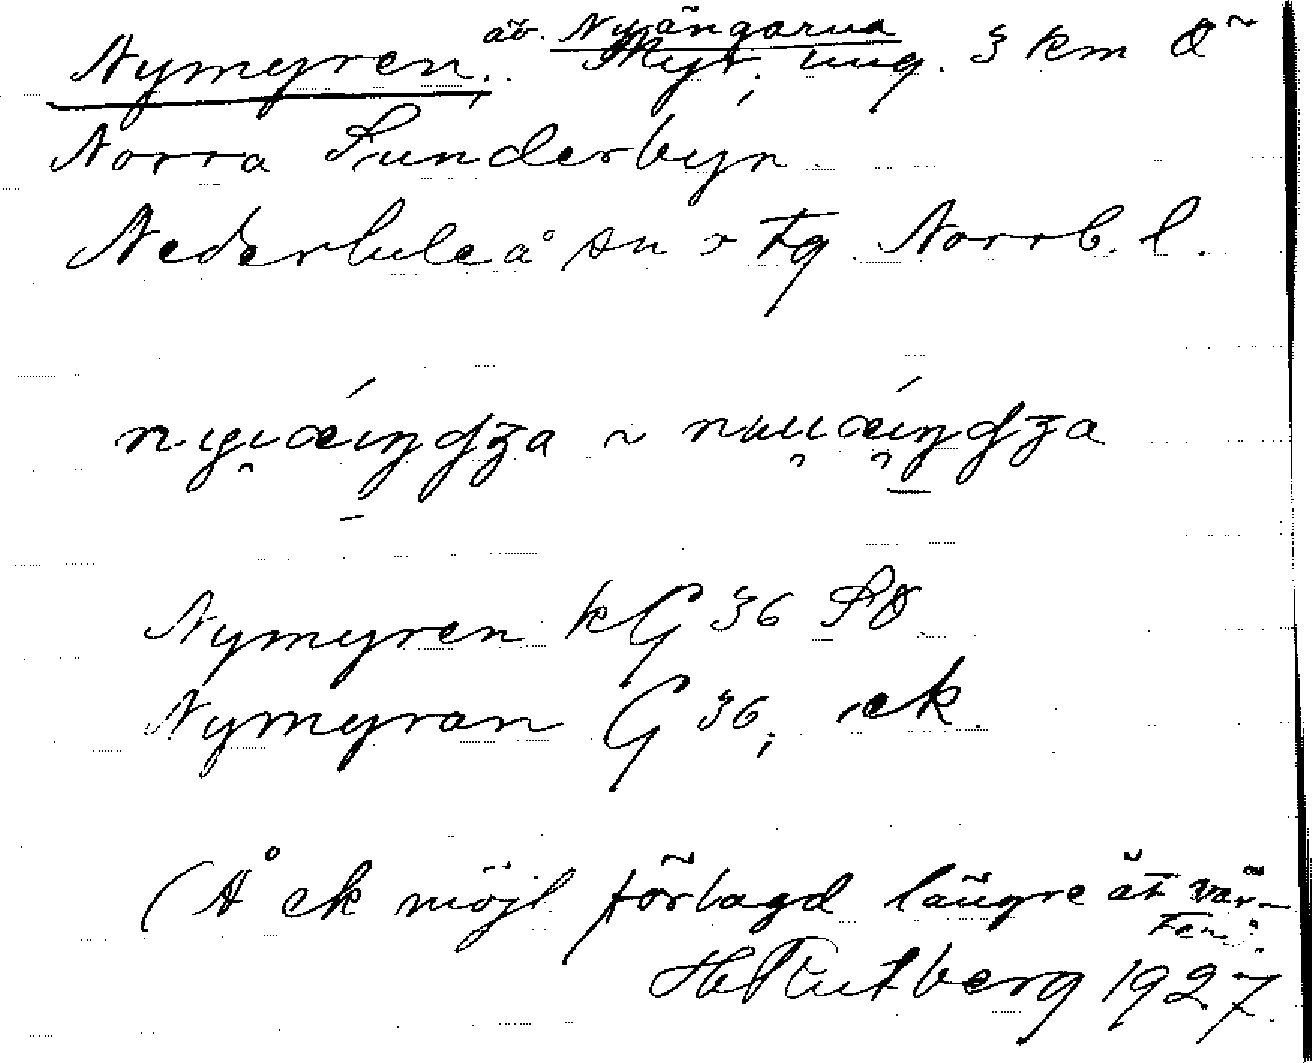 Nymyren, äv. Nyängarna Myr, ung. 3 km Ö
Norra Sunderbyn
Nederluleå sn o tg Norrb. l.
Nymyren kG 36 SO
Nymyran G 36, ek.
(Å ek möjl förlagd längre åt väs-
ter).
H Rutberg 1927.